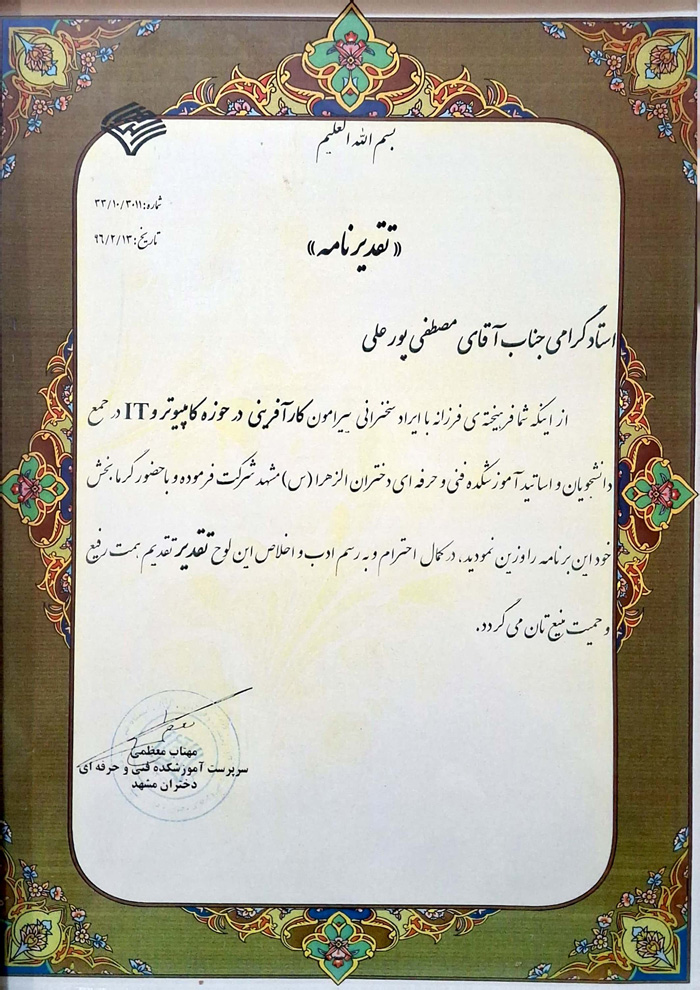 بسم الله العلیم
شماره: ۳۳/۱۰/۳۰۱۱
تاریخ: ۹۶/۲/۱۳
«تقدیرنامه»
استاد گرامی جناب آقای مصطفی پور علی
از اینکه شما فرهیخته ی فرزانه با ایراد سخنرانی پیرامون کارآفرینی در حوزه کامپیوتر و IT در جمع
دانشجویان و اساتید آموزشکده فنی و حرفه ای دختران الزهرا (س) مشهد شرکت فرموده و با حضور گرما بخش
خود این برنامه را وزین نمودید، در کمال احترام و به رسم ادب و اخلاص این لوح تقدیر تقدیم همت رفیع
و حمیت منیع تان می گردد.
مهتاب معظمی
سرپرست آموزشکده فنی و حرفه ای
دختران مشهد